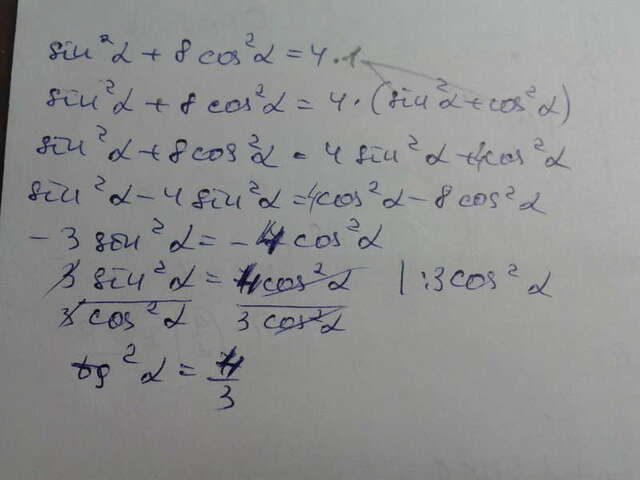 sin²α + 8 cos²α = 4 · 1
sin²α + 8 cos²α = 4 · (sin²α + cos²α)
sin²α + 8 cos²α = 4 sin²α + 4cos²α
sin²α - 4 sin²α = 4cos²α - 8 cos²α
- 3 sin²α = - 4 cos²α
3 sin²α / 3 cos²α = 4 cos²α / 3 cos²α | : 3 cos²α
tg²α = 4/3